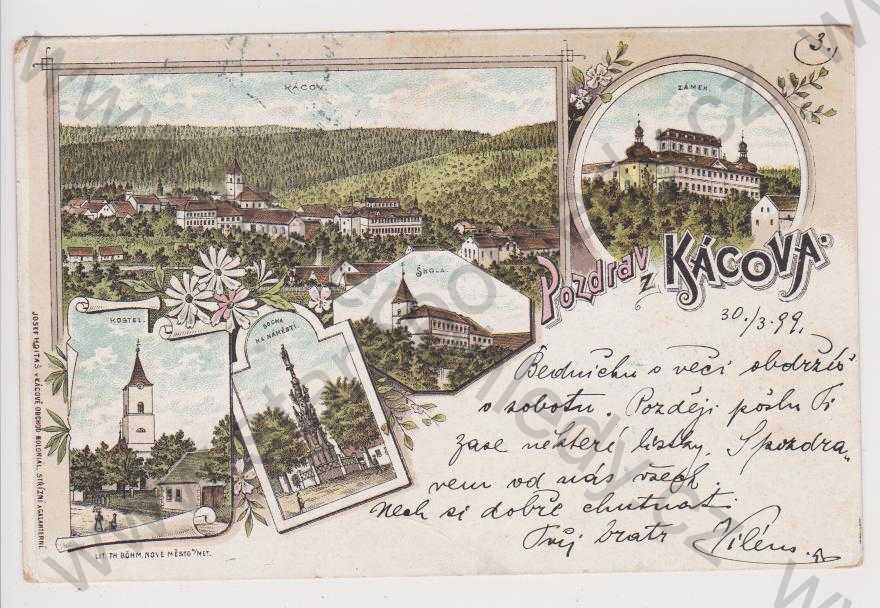 3.
KÁCOV.
ZÁMEK.
Pozdrav z KÁCOVA.
ŠKOLA.
KOSTEL.
SOCHA
NA NÁMĚSTÍ.
30./3.99.
Bedničku s věcí obdržíš
v sobotu. Později pošlu Ti
zase některé lístky. S pozdra„
vem od nás všech.
Nech si dobře chutnat
Tvůj bratr Vilém.
JOSEF HOLTAŠ V KÁCOVĚ, OBCHOD KOLONIAL. STŘIŽNÍ A GALANTERNÍ.
LIT. TH. BÖHM, NOVÉ MĚSTO N/MET.